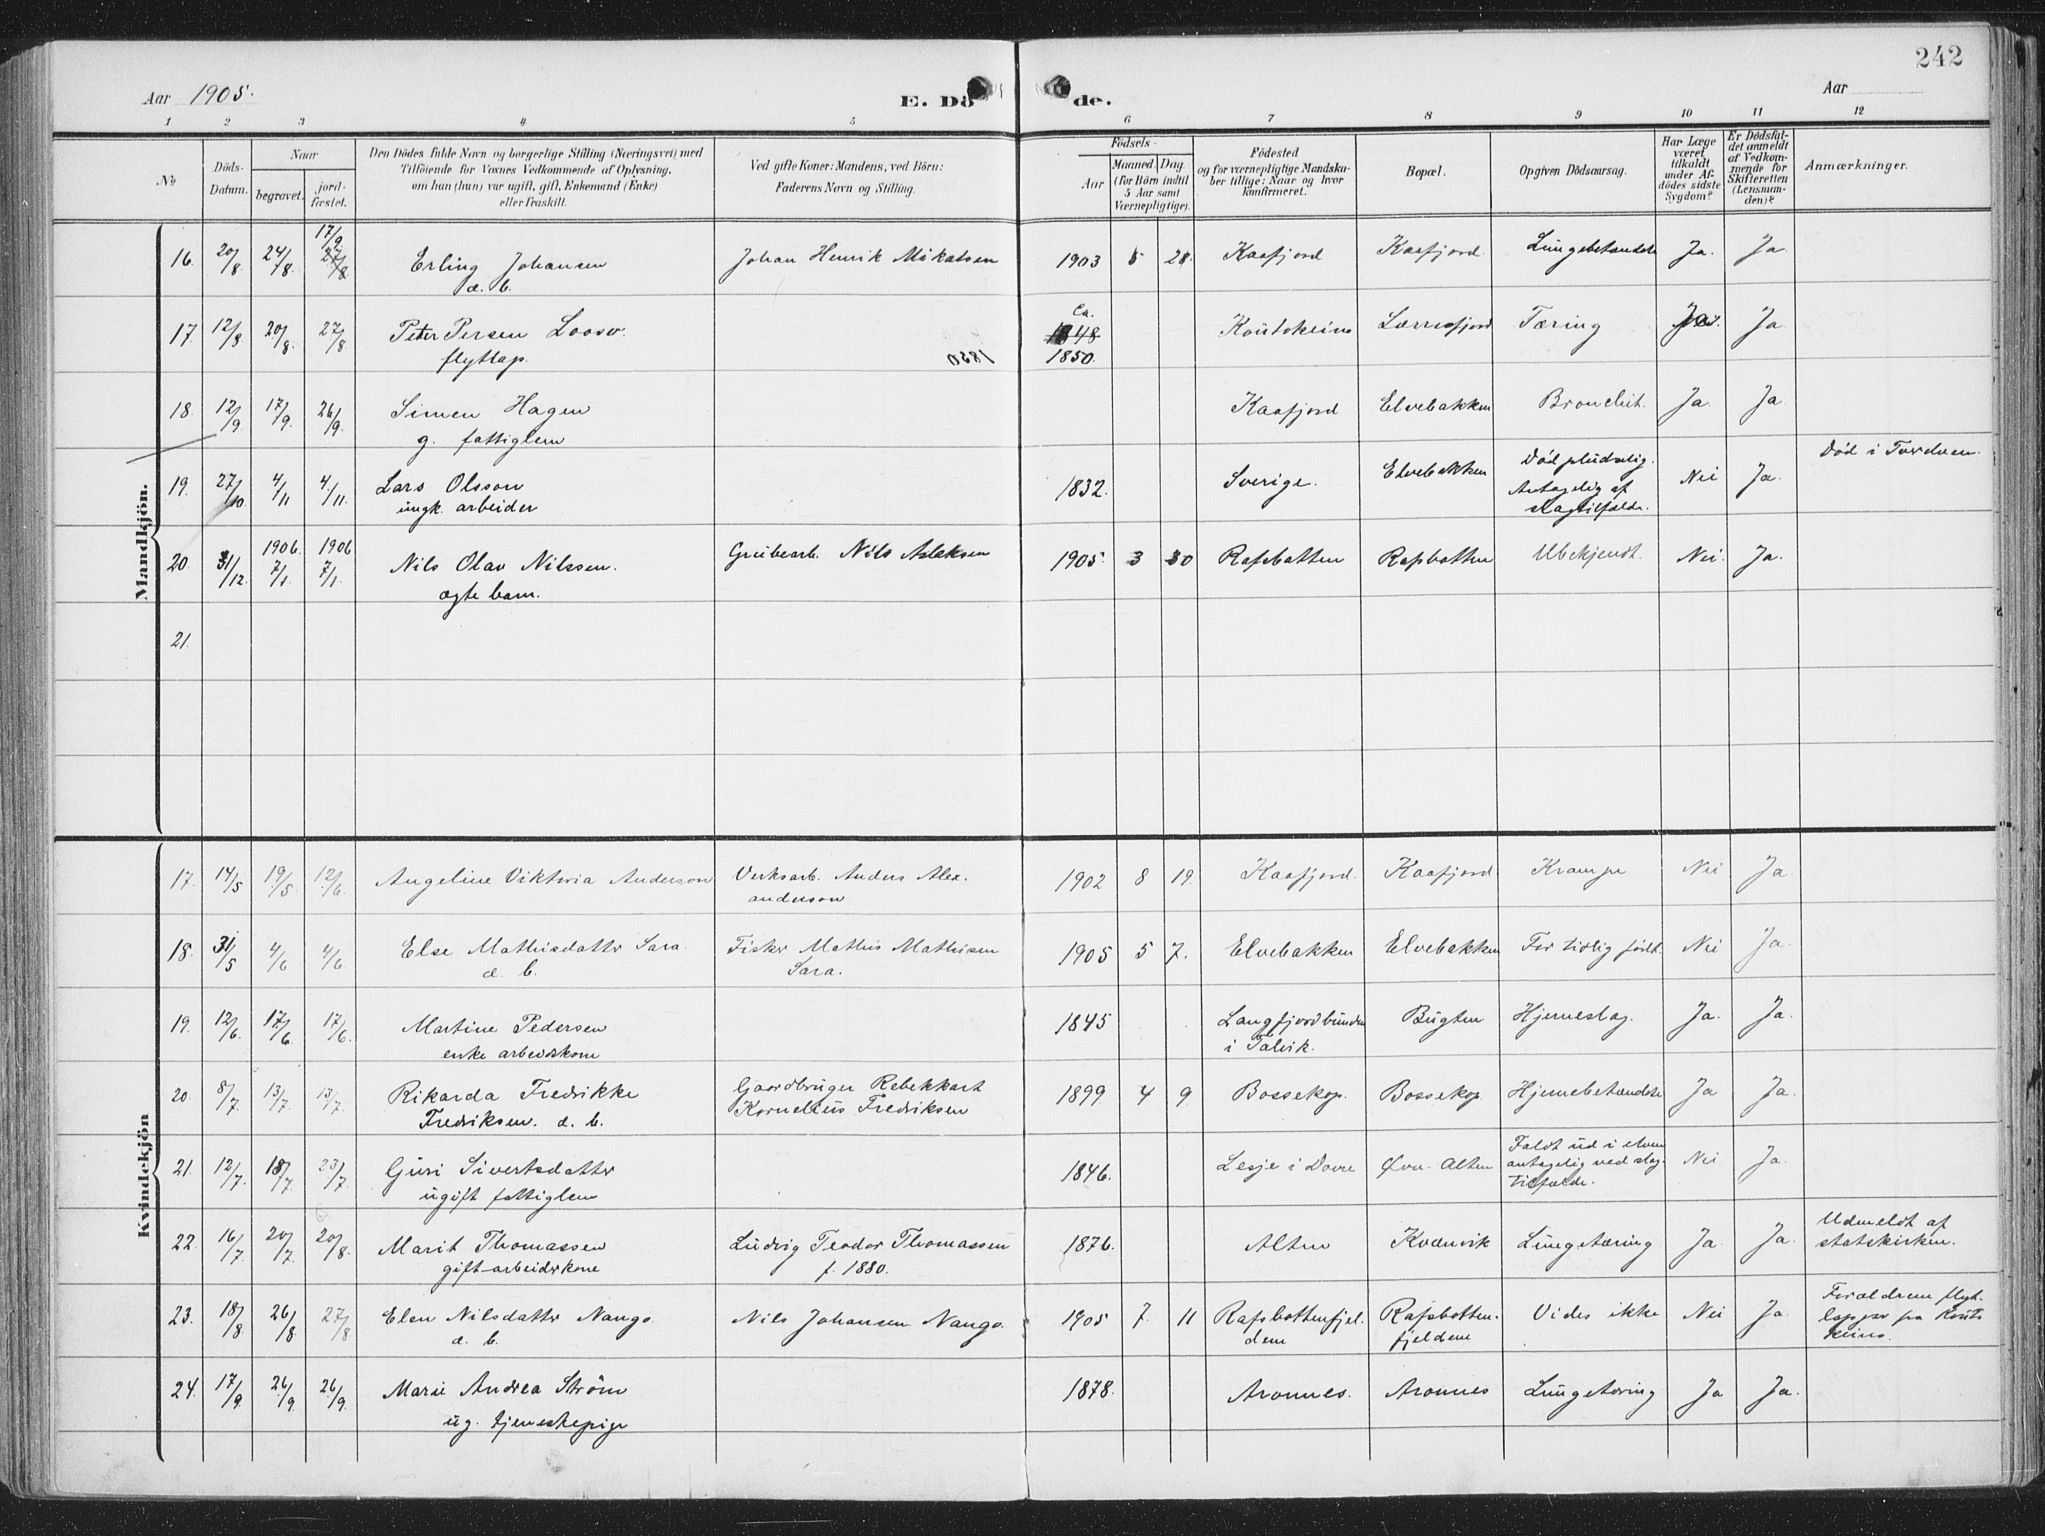 242
Aar 1905.
E. Dö de.
Aar
1 2 3 4 5 6 7 8 9 10 11 12
No
Döds-Datum.
Naar
begravet.
jord-fæstet.
Den Dödes fulde Navn og borgerlige Stilling (Næringsvei) med
Tilföiende for Voxnes Vedkommende af Oplysning,
om hun (hun) var ugift, gift, Enkemand (Enke)
eller fraskilt.
Ved gifte Koner: Mandens, ved Börn:
Faderens Navn og Stilling.
Födsels-
Aar
Maaned. Dag.
(for Börn indtil
5 Aar samt
Værnepligtige).
Födested
og for værnepligtige Mandska-
ber tillige: Naar og hvor
konfirmeret.
Bopæl.
Opgiven Dödsaarsag.
Har Læge
været
tilkaldt
under Af-
dödes sidste
Sygdom?
Er Dödsfal-
det anmeldt
af Vedkom-
mende for
Skifteretten
(Lensman-
den)?
Anmærkninger.
Mandkjön.
16. 20/8 24/8 17/9 27/8 Erling Johansen Johan Henrik Mikalsen 1903 5 28. Kaafjord Kaafjord Lungebetændelse Ja. Ja
æ. b.
17. 12/8 20/8 27/8 Peter Persen Loosv. Ca. 1848 Koutokeino Lærresfjord Tæring Ja
flyttap. 1850 1850.
18. 12/9 17/9. 26/9. Simen Hagen Kaafjord Elvebakken Bronchit. Ja. Ja
g. fattiglem
19. 27/10 4/11 4/11. Lars Olsson 1832. Sverige. Elvebakken Död pludselig. Nei Ja. Död i Tverelven.
ungk. arbeider Antagelig af
slagtilfælde.
20. 31/12. 1906. 7/1. 1906 7/1. Nils Olav Nilssen. Grubearb. Nils Aslaksen 1905. 3 30 Rafsbotten Rafsbotten Ubekjendt. Nei. Ja.
ægte barn.
21.
Kvindekjön
17. 14/5 19/5 12/6. Angeline Viktoria Anderson Verksarb. Anders Alex. 1902 8 19. Kaafjord. Kaafjord. Krampe Nei Ja
anderson
18. 31/5 4/6 4/6 Else Mathisdatter Sara. Fisker Mathis Mathisen 1905 5 7. Elvebakken Elvebakken For tidlig født. Nei Ja.
æ. b. Sara.
19. 12/6. 17/6 17/6. Martine Pedersen 1845 Langfjordbunden Bugten Hjerneslag. Ja. Ja.
enke arbeiderkone i Talvik.
20. 8/7 13/7. 13/7. Rikarda Fredrikke Gaardbruger Rebekkart 1899 4 9. Bossekop. Bossekop. Hjernebetændelse Ja Ja.
Fredriksen. æ. b. Kornelius Fredriksen
21. 12/7. 18/7 23/7. Guri Sivertsdatter 1846. Lesje i Dovre Øvre Alten Faldt ud i elven Nei Ja.
ugift fattiglem antagelig ved slag-
tilfælde.
22. 16/7 20/7 20/8. Marit Thomassen Ludvig Teodor Thomassen 1876. Alten Kvænvik Lungetæring Ja. Ja. Udmeldt af
gift arbeiderkone f. 1880. statskirken.
23. 18/8 26/8 27/8 Elen Nilsdatter Nango. Nils Johansen Nango. 1905 7. 11 Rafsbottenfjel- Rafsbotten- Vides ikke Nei Ja. Forældrene flyt-
æ. b. dene fjeldene lapper fra Kouto-
keino.
24. 17/9. 26/9. 26/9. Marie Andrea Strøm 1878. Aronnes. Aronnes Lungetæring Ja Ja.
ug. tjenestepige